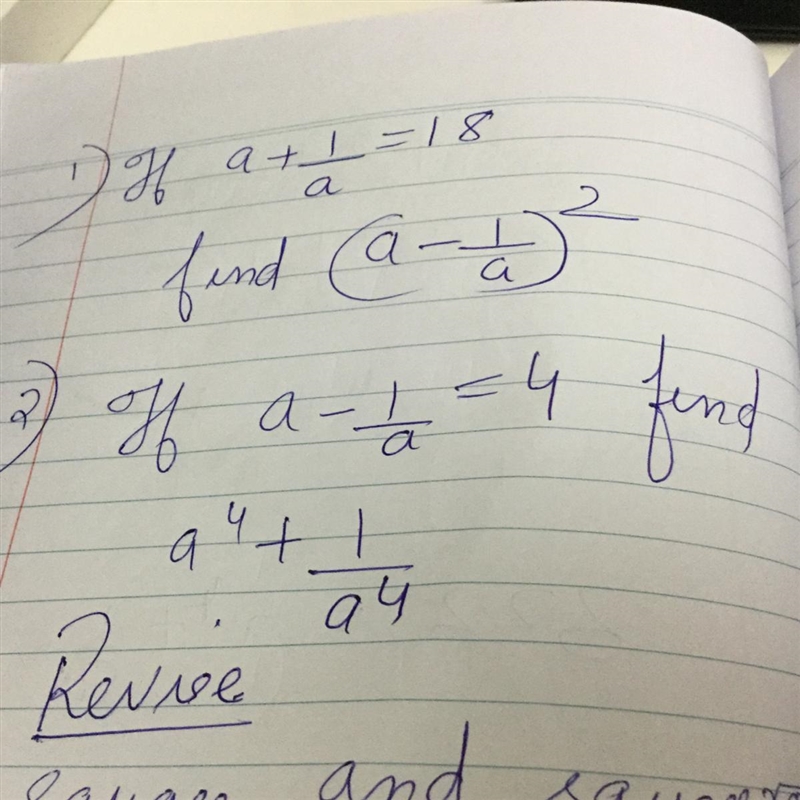 1) If a + 1/a = 18
find (a - 1/a)²
2) If a - 1/a = 4 find
a⁴ + 1/a⁴
Revise
and